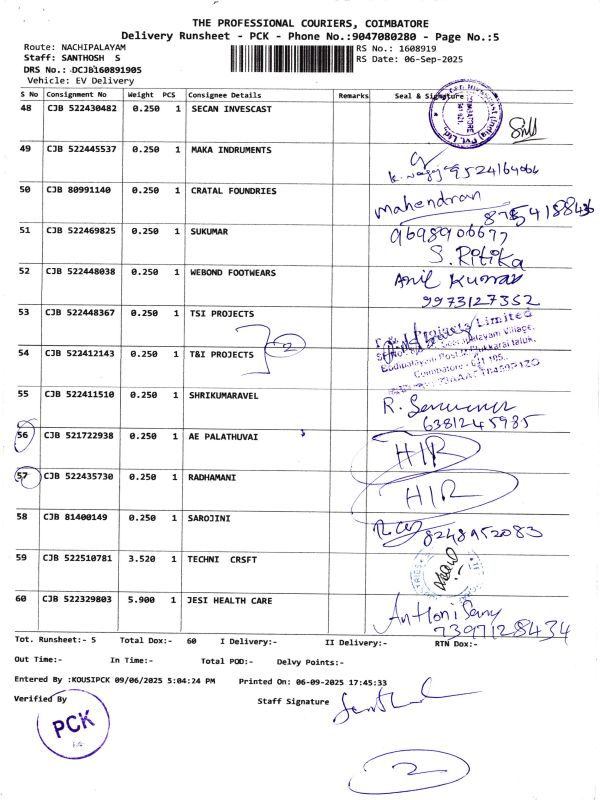 THE PROFESSIONAL COURIERS, COIMBATORE
Delivery Runsheet - PCK - Phone No.:9047080280 - Page No.:5
Route: NACHIPALAYAM RS No.: 1608919
Staff: SANTHOSH S RS Date: 06-Sep-2025
DRS No.: DCJB160891905
Vehicle: EV Delivery
S No Consignment No Weight PCS Consignee Details Remarks Seal & Signature
48 CJB 522430482 0.250 1 SECAN INVESCAST
49 CJB 522445537 0.250 1 MAKA INDRUMENTS
9524164064
50 CJB 80991140 0.250 1 CRATAL FOUNDRIES
mahendran
51 CJB 522469825 0.250 1 SUKUMAR 9698906677
S. Ritika
52 CJB 522448038 0.250 1 WEBOND FOOTWEARS Anil Kumar
9973127352
53 CJB 522448367 0.250 1 TSI PROJECTS
2
54 CJB 522412143 0.250 1 T&I PROJECTS
55 CJB 522411510 0.250 1 SHRIKUMARAVEL R.
6381245985
56 CJB 521722938 0.250 1 AE PALATHUVAI HIR
57 CJB 522435730 0.250 1 RADHAMANI HIR
58 CJB 81400149 0.250 1 SAROJINI
8248952083
59 CJB 522510781 3.520 1 TECHNI CRSFT
60 CJB 522329803 5.900 1 JESI HEALTH CARE
Anthoni Samy
7397128434
Tot. Runsheet:- 5 Total Dox:- 60 I Delivery:- II Delivery:- RTN Dox:-
Out Time:- In Time:- Total POD:- Delvy Points:-
Entered By :KOUSIPCK 09/06/2025 5:04:24 PM Printed On: 06-09-2025 17:45:33
Verified By Staff Signature
PCK
2